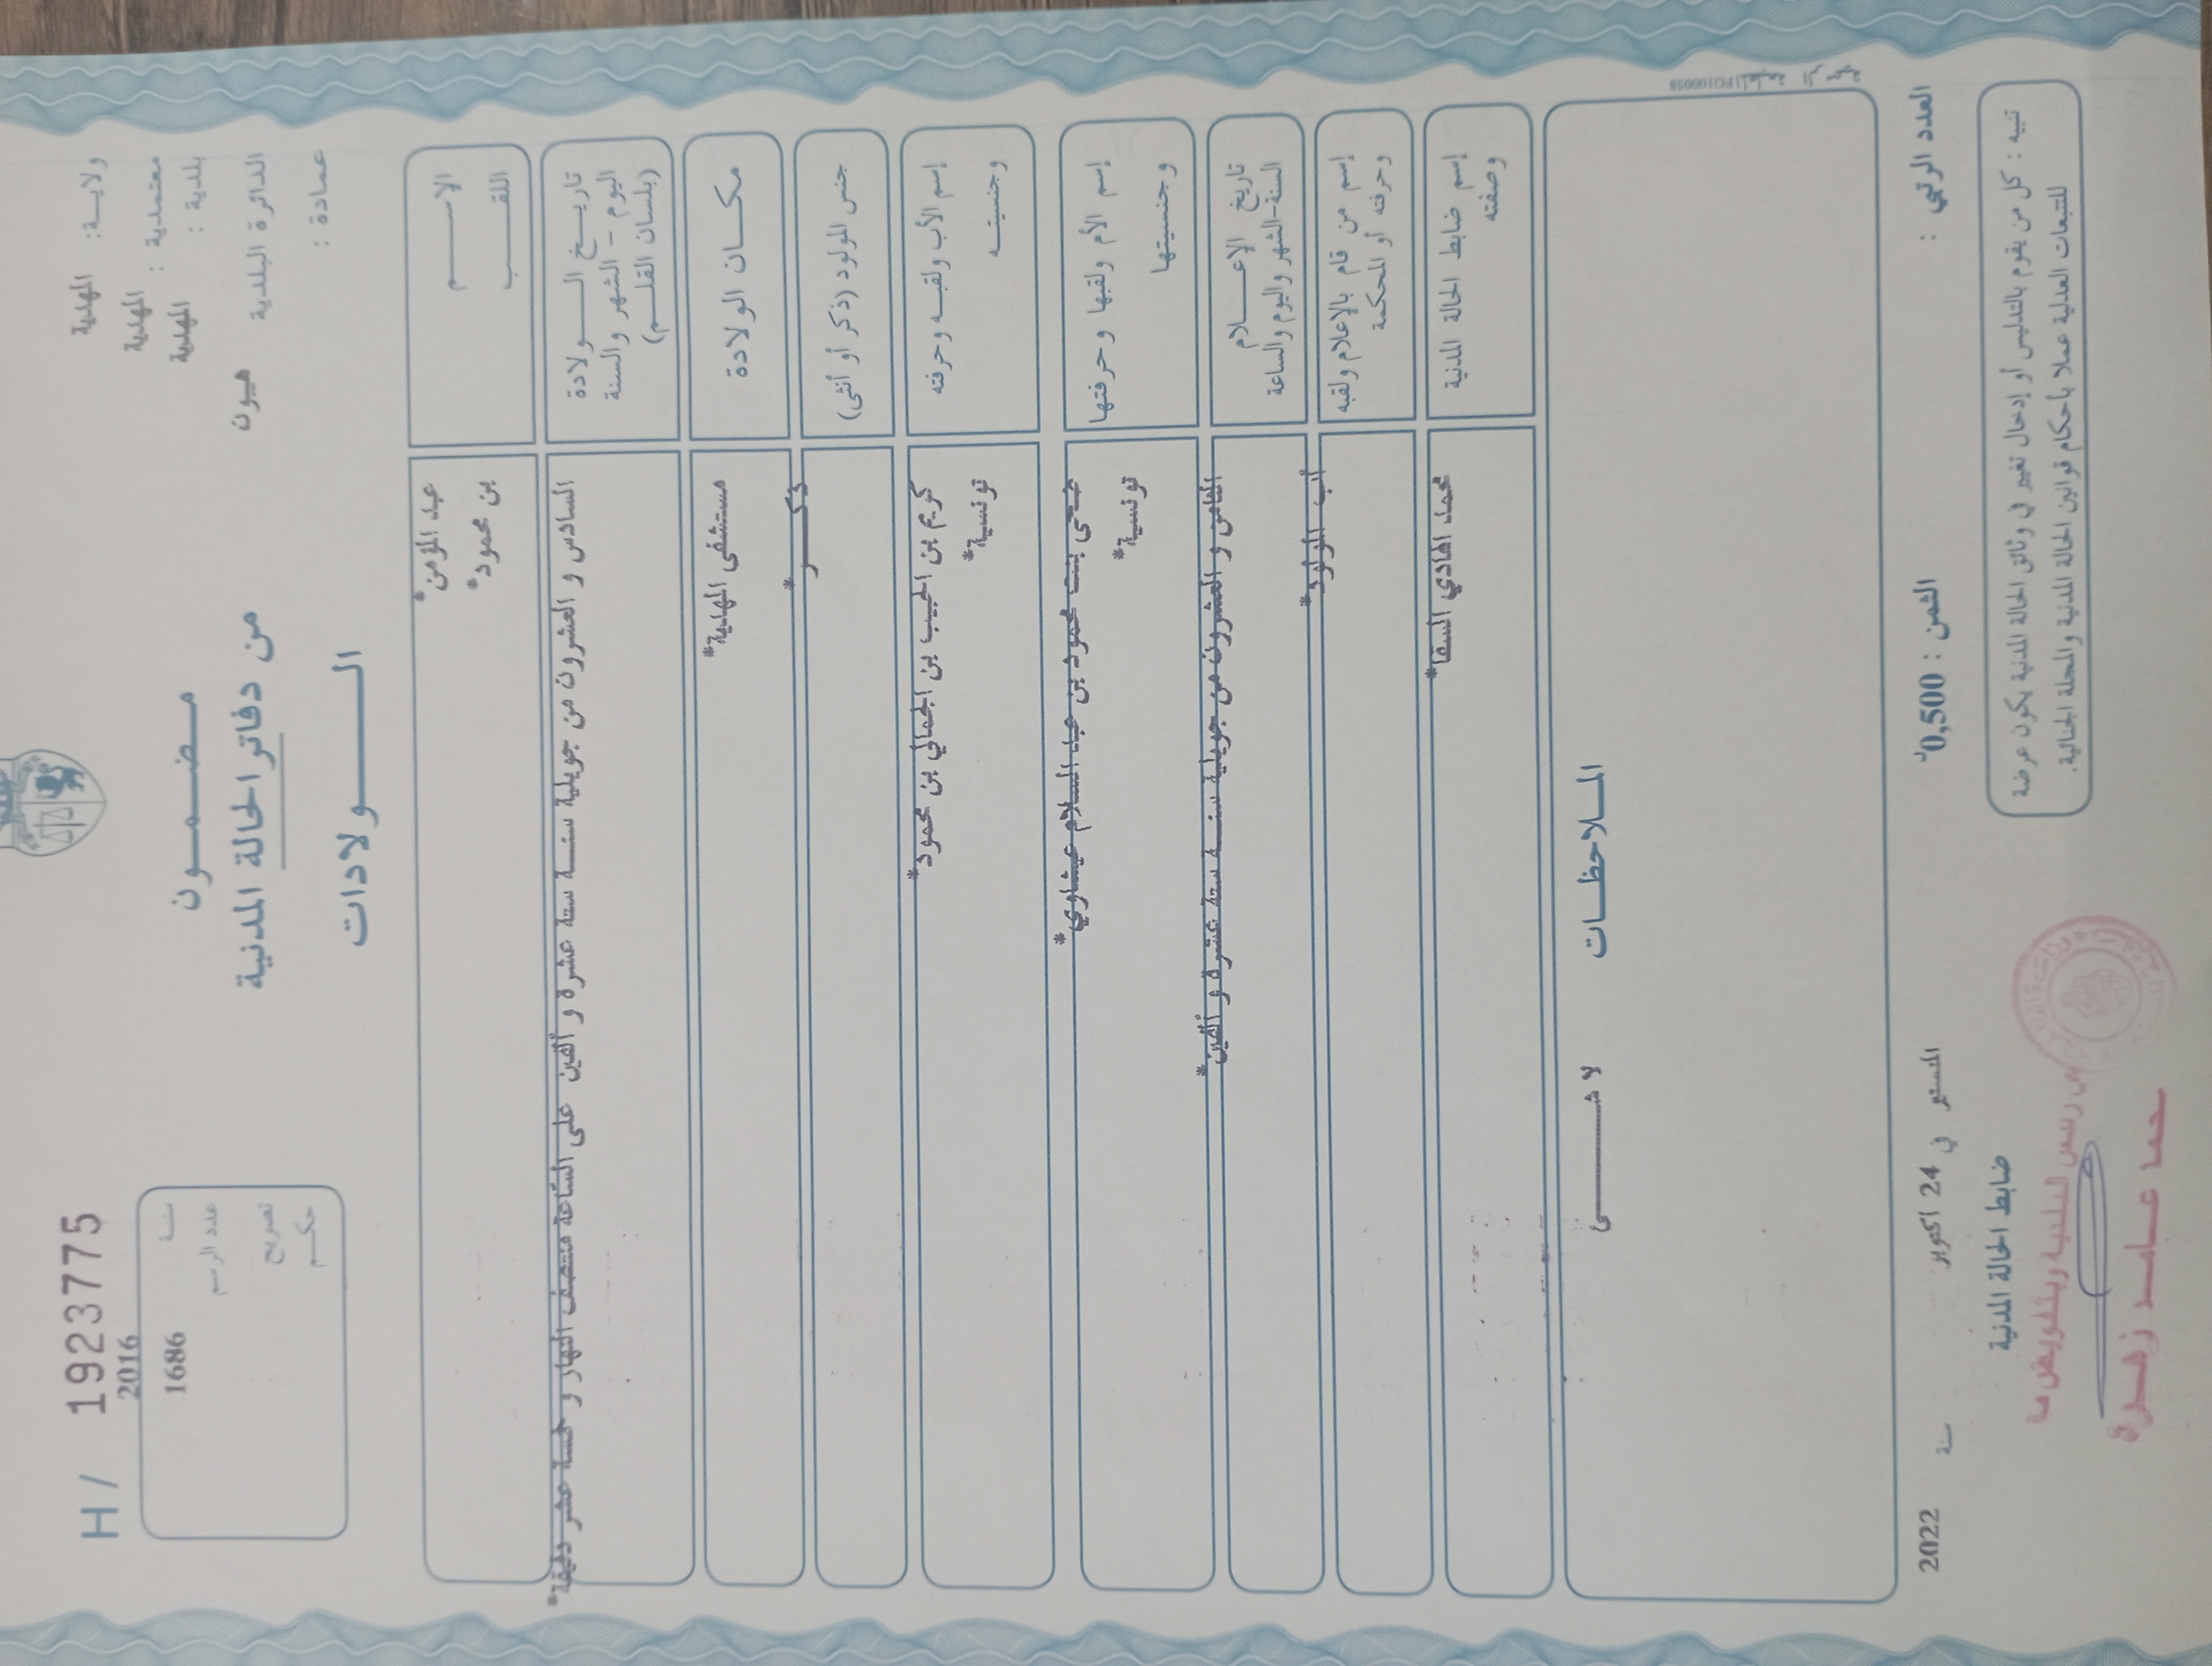 H / 1923775
ولايـة: المهدية
معتمدية : المهدية
بلدية : المهدية
الدائرة البلدية هيبون
عمادة :
مـضـمـــون
من دفاتر الحالة المدنية
الـــــولادات
2016
سنـة
1686
عدد الرسم
تصريح
حكـم
الاســـــم
عبد المؤمن*
اللقـــــب
بن محمود*
تاريـــخ الــــولادة
اليوم – الشهر والسنة
(بلسان القلــم)
السادس و العشرون من جويلية سنــة ستة عشرة و ألفين على السّاعة منتصف النهار و خمسة عشر دقيقة*
مكــان الولادة
مستشفى المهدية*
جنس المولود (ذكر أو أنثى)
ذكـــــر*
إسم الأب ولقبـه وحرفته
وجنسيتـه
كريم بن الحبيب بن الجمالي بن محمود*
تونسية*
إسم الأم ولقبها وحرفتها
وجنسيتها
بنت محمود بن عبد السلام عيشاوي*
تونسية*
تاريخ الإعـــلام
السنة-الشهر واليوم والساعة
الثامن و العشرون من جويلية سنــة ستة عشرة و ألفين*
إسم من قام بالإعلام ولقبه
وحرفته أو المحكمة
أب المولود*
إسم ضابط الحالة المدنية
وصفته
محمد الهادي السقا*
المـلاحظـات
لا شـــــــى
العدد الرتبي :
الثمن : 0,500د
في 24 اكتوبر سنة 2022
ضابط الحالة المدنية
تنبيه : كل من يقوم بالتدليس أو إدخال تغيير في وثائق الحالة المدنية يكون عرضة
للتتبعات العدلية عملا بأحكام قوانين الحالة المدنية والمجلة الجنائية.